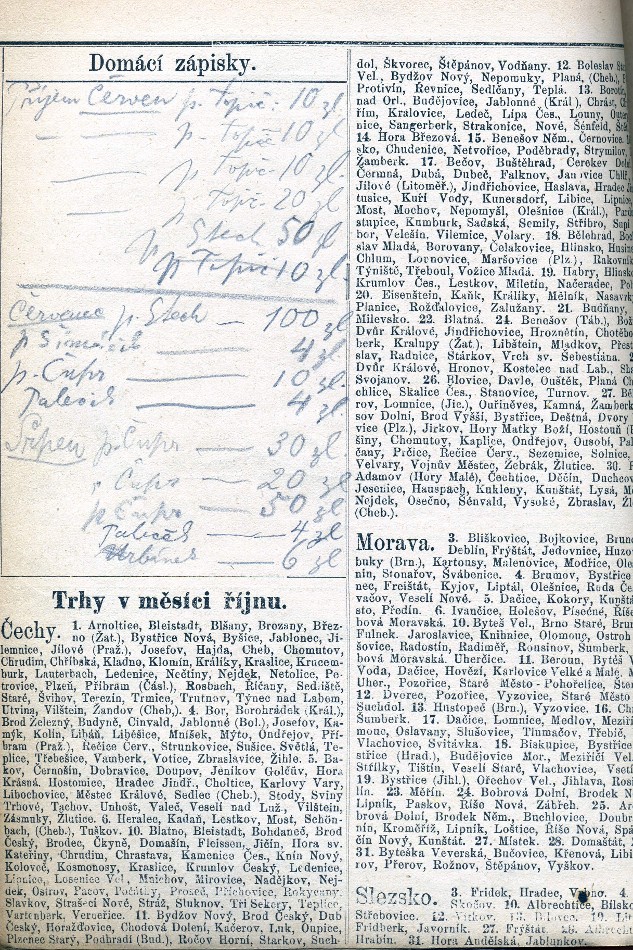 Domácí zápisky.
Příjem Červen p. Topič. 10 zl
— — p. Topič 10 zl
— p. Topič 10 zl.
— p. Topič 20 zl
p Stech 50 zl
p Topič 10 zl
Červenec p. Stech — 100 zl
p — 4 zl
p. Čupr — 10 zl.
— 4 zl
Srpen p. Čupr — 30 zl
Čupr — 20 zl
p. Čupr — 50 zl
— 4 zl
— 6 zl
Trhy v měsíci říjnu.
Čechy. 1. Arnoltice, Bleistadt, Blšany, Brozany, Břez-
no (Žat.), Bystřice Nová, Byšice, Jablonec, Ji-
lemnice, Jílové (Praž.), Josefov, Hajda, Cheb, Chomutov,
Chrudim, Chřibská, Kladno, Klomín, Králíky, Kraslice, Krucem-
burk, Lauterbach, Ledenice, Nečtiny, Nejdek, Netolice, Pe-
trovice, Plzeň, Příbram (Čásl.), Rosbach, Říčany, Sedliště,
Staré, Švihov, Terezín, Trmice, Trutnov, Týnec nad Labem,
Utvina, Vilštein, Žandov (Cheb.). 4. Bor, Borohrádek (Král.),
Brod Železný, Budyně, Cinvald, Jablonné (Bol.), Josefov, Ka-
mýk, Kolín, Libáň, Liběšice, Mníšek, Mýto, Ondřejov, Pří-
bram (Praž.), Řečice Červ., Strunkovice, Sušice. Světlá, Te-
plice, Třebešice, Vamberk, Votice, Zbraslavice, Žihle. 5. Ba-
kov, Černošín, Dobravice, Doupov, Jeníkov Golčův, Hora
Krásná. Hostomice, Hradec Jindř., Choltice, Karlovy Vary,
Libochovice, Městec Králové, Sedlec (Cheb.), Stody, Sviny
Trhové, Tachov, Unhošť, Valeč, Veselí nad Luž., Vilštein,
Zásmuky, Žlutice. 6. Heralec, Kadaň, Lestkov, Most, Schön-
bach, (Cheb.), Tuškov. 10. Blatno, Bleistadt, Bohdaneč, Brod
Český, Brodec, Čkyně, Domašín, Fleissen, Jičín, Hora sv.
Kateřiny, Chrudim, Chrastava, Kamenice Čes., Knín Nový,
Koloveč, Kosmonosy, Kraslice, Krumlov Český, Ledenice,
Lipnice, Losenice Vel., Mnichov, Mirovice, Nadějkov, Nej-
dek, Ostrov, Pacov, Počátky, Proseč, Přichovice, Rokycany,
Slavkov, Strašeci Nové, Stráž, Sluknov, Tři Sekery, Teplice,
Vartenberk, Verneřice. 11. Bydžov Nový, Brod Český, Dub
Český, Horažďovice, Chodová Dolení, Kačerov, Luk, Oupice,
Plzenec Starý, Podhradí (Bud.), Ročov Horní, Starkov, Such-
dol, Škvorec, Štěpánov, Vodňany. 12. Boleslav
Vel., Bydžov Nový, Nepomuky, Planá, (Cheb.),
Protivín, Řevnice, Sedlčany, Teplá. 13.
nad Orl., Budějovice, Jablonné (Král.), Chrást,
řím, Kralovice, Ledeč, Lípa Čes., Louny,
nice, Sangerberk, Strakonice, Nové, Šénfeld,
14. Hora Březová. 15. Benešov Něm., Černovice,
sko, Chudenice, Netvořice, Poděbrady, Strymilov,
Žamberk. 17. Bečov, Buštěhrad, Cerekev
Čermná, Dubá, Dubeč, Falknov, Janovice
Jílové (Litoměř.), Jindřichovice, Haslava, Hradec
tusice, Kuří Vody, Kunersdorf, Libice,
Most, Mochov, Nepomyšl, Olešnice (Král.),
stupice, Kumburk, Sadská, Semily, Stříbro,
bor, Velešín, Vilemice, Volary. 18. Bělehrad,
slav Mladá, Borovany, Čelakovice, Hlinsko,
Chlum, Lovnovice, Maršovice (Plz.), Rakovník
Týniště, Třeboul, Vožice Mladá. 19. Habry, Hlinsko
Krumlov Čes., Lestkov, Miletín, Načeradec,
20. Eisenštein, Kaňk, Králíky, Mělník,
Planice, Rožďalovice, Zalužany. 21. Budňany,
Milevsko. 22. Blatná. 24. Benešov (Táb.),
Dvůr Králové, Jindřichovice, Hroznětín,
berk, Kralupy (Žat.), Libštein, Mladkov,
slav, Radnice, Stárkov, Vrch sv. Šebestiána.
Dvůr Králové, Hronov, Kostelec nad Lab.,
Svojanov. 26. Blovice, Davle, Ouštěk, Planá
chlice, Skalice Čes., Stanovice, Turnov. 27.
rov, Lomnice, (Jic.), Ouřiněves, Kamná,
sov Dolní, Brod Vyšší, Bystřice, Deštná, Dvory
vice (Plz.), Jirkov, Hory Matky Boží, Hostouň
šiny, Chomutov, Kaplice, Ondřejov, Ousobí,
čany, Prčice, Řečice Červ., Sezemice, Solnice,
Velvary, Vojnův Městec, Žebrák, Žlutice. 30.
Adamov (Hory Malé), Čechtice, Děčín,
Jesenice, Hauspach, Kukleny, Kunštát, Lysá,
Nejdek, Osečno, Šénvald, Vysoké, Zbraslav,
(Cheb.).
Morava. 3. Bliškovice, Bojkovice,
Deblín, Frýštát, Jedovnice,
buky (Brn.), Kartonsy, Malenovice, Modřice,
nín, Stonařov, Švábenice. 4. Brumov, Bystřice
nec, Freištát, Kyjov, Liptál, Olešnice, Ruda
vačov, Veselí Nové. 5. Dačice, Kokory,
sto, Předín. 6. Ivančice, Holešov, Písečné,
bova Moravská. 10. Byteš Vel., Brno Staré,
Fulnek. Jaroslavice, Knihnice, Olomouc, Ostroh
šovice, Radostín, Radiměř, Rousinov, Šumberk,
bová Moravská. Uherčice. 11. Beroun, Byteš
Voda, Dačice, Hovězí, Karlovice Velké a Malé,
Uher., Pozořice, Staré Město - Pohořelice,
12. Dverec, Pozořice, Vyzovice, Staré Město
Suchdol. 13. Hustopeč (Brn.), Vyzovice. 16.
Šumberk. 17. Dačice, Lomnice, Medlov,
mouc, Oslavany, Slušovice, Tlumačov, Třebíč,
Vlachovice, Svitávka. 18. Biskupice, Bystřice
střice (Hrad.), Budějovice Mor., Meziříčí
Střílky, Tištín, Veselí Staré, Vlachovice,
19. Bystřice (Jihl.), Ořechov Vel., Jihlava,
lín. 23. Měřín. 24. Bobrová Dolní, Brodek
Lipník, Paskov, Říše Nová, Zábřeh. 25.
brová Dolní, Brodek Něm., Buchlovice,
nín, Kroměříž, Lipník, Loštice, Říše Nová,
čín Nový, Kunštát. 27. Místek. 28. Domaštát,
31. Byteška Veverská, Bučovice, Křenová,
rov, Přerov, Rožnov, Štěpánov, Vyškov.
Slezsko. 3. Frídek, Hradec, 4.
Skočov. 10. Albrechtice,
Střebovice. 12. Vítkov. 13. Bílovec.
Frídberk, Javorník. 27. Frýšták. 28.
Hrabín. 31. Hora Andělská, Jablunkov.